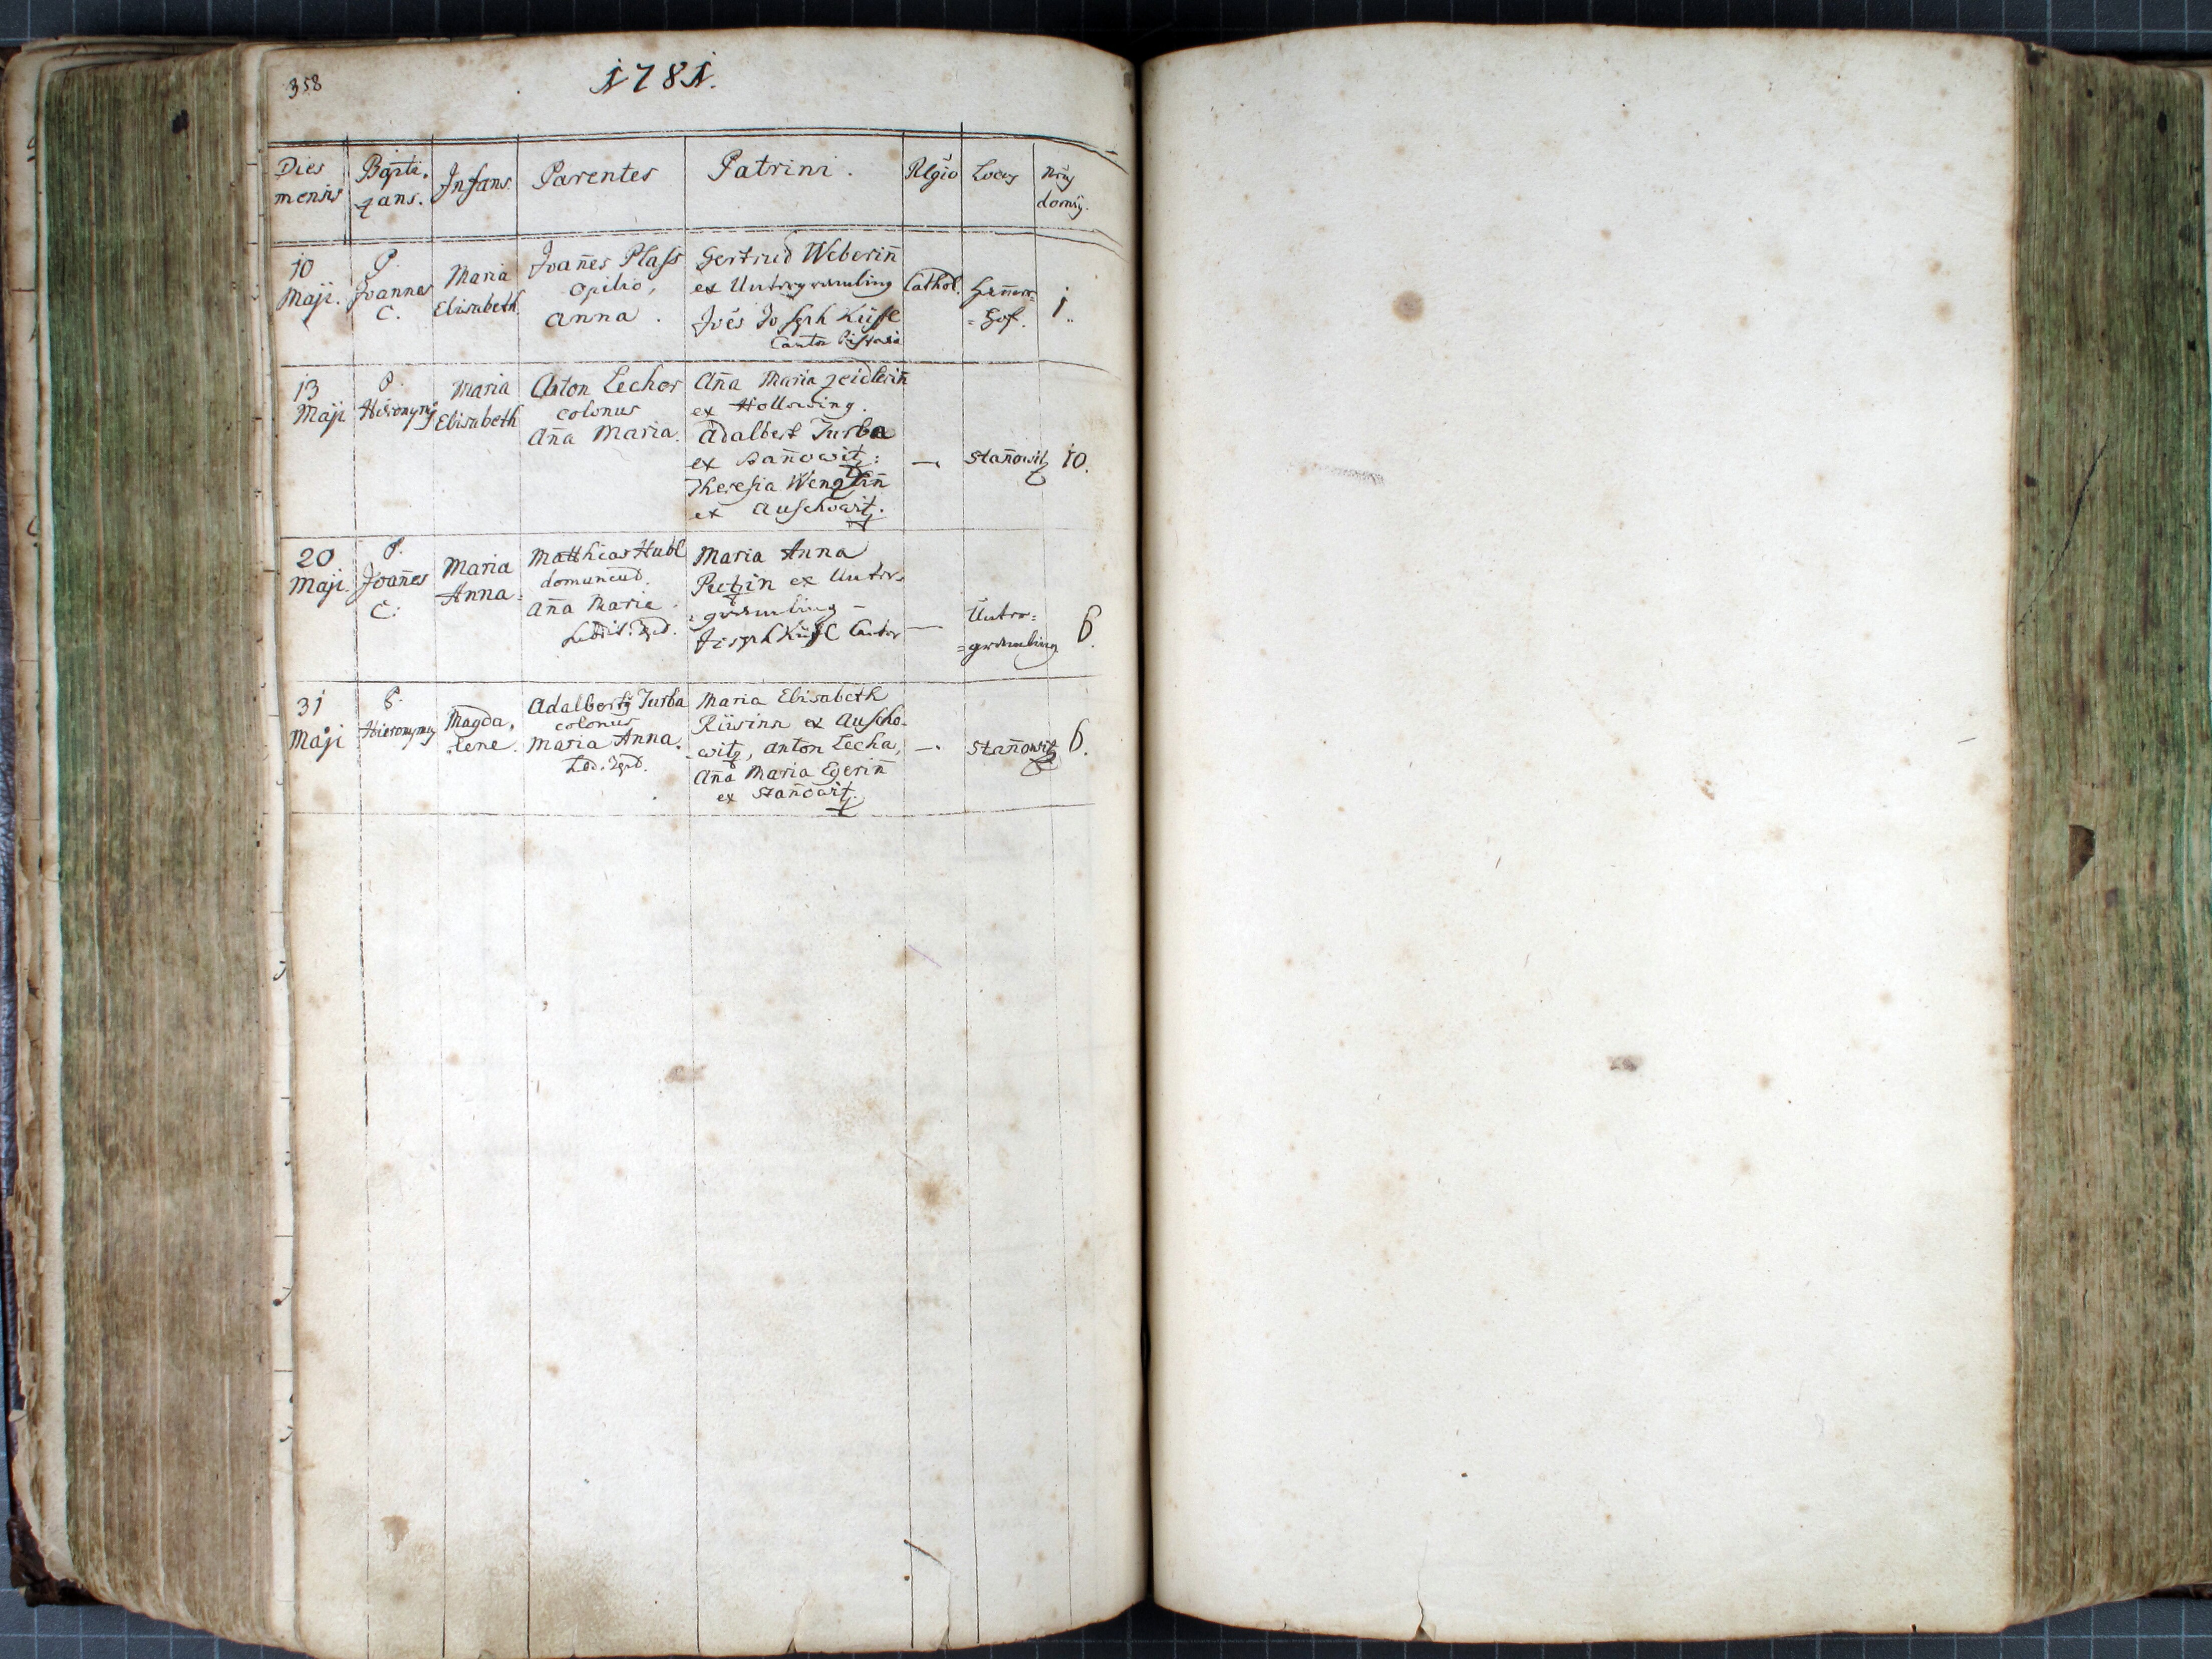 358
1781.
Dies
mensis
Bapti-
zans.
Infans.
Parentes
Patrini.
Rlgio
Locus
Nrus
domus.
10
Maji.
P.
Joannes
C.
Maria
Elisabeth
Joan̄es Plass
opilio,
anna.
Gertrud Weberin̄
ex Untergramling
Joēs Joseph Küssl
Cantor
Cathol.
Hof.
1.
13
Maji
P.
Hieronymus
Maria
Elisabeth
Anton Lecher
colonus
An̄a Maria.
An̄a Maria Zeidlerin̄
ex Hollowing.
Adalbert Turba
ex Stan̄owitz:
Theresia Wenzlin̄
ex Auschowitz.
—
Stan̄owitz
10.
20
Maji.
P.
Joan̄es
C:
Maria
Anna
Matthias Hubl
domuncul.
An̄a Maria
Maria Anna
ex Unter-
=gramling –
Joseph Küssl Cantor
—
Unter=
=gramling
6.
31
Maji
P.
Hieronymus
Magda-
lene.
Adalbertus Turba
colonus
Maria Anna.
Maria Elisabeth
ex Auscho-
witz, Anton Lecha,
An̄a Maria Egerin̄
ex Stan̄owitz.
—.
Stan̄owitz
6.